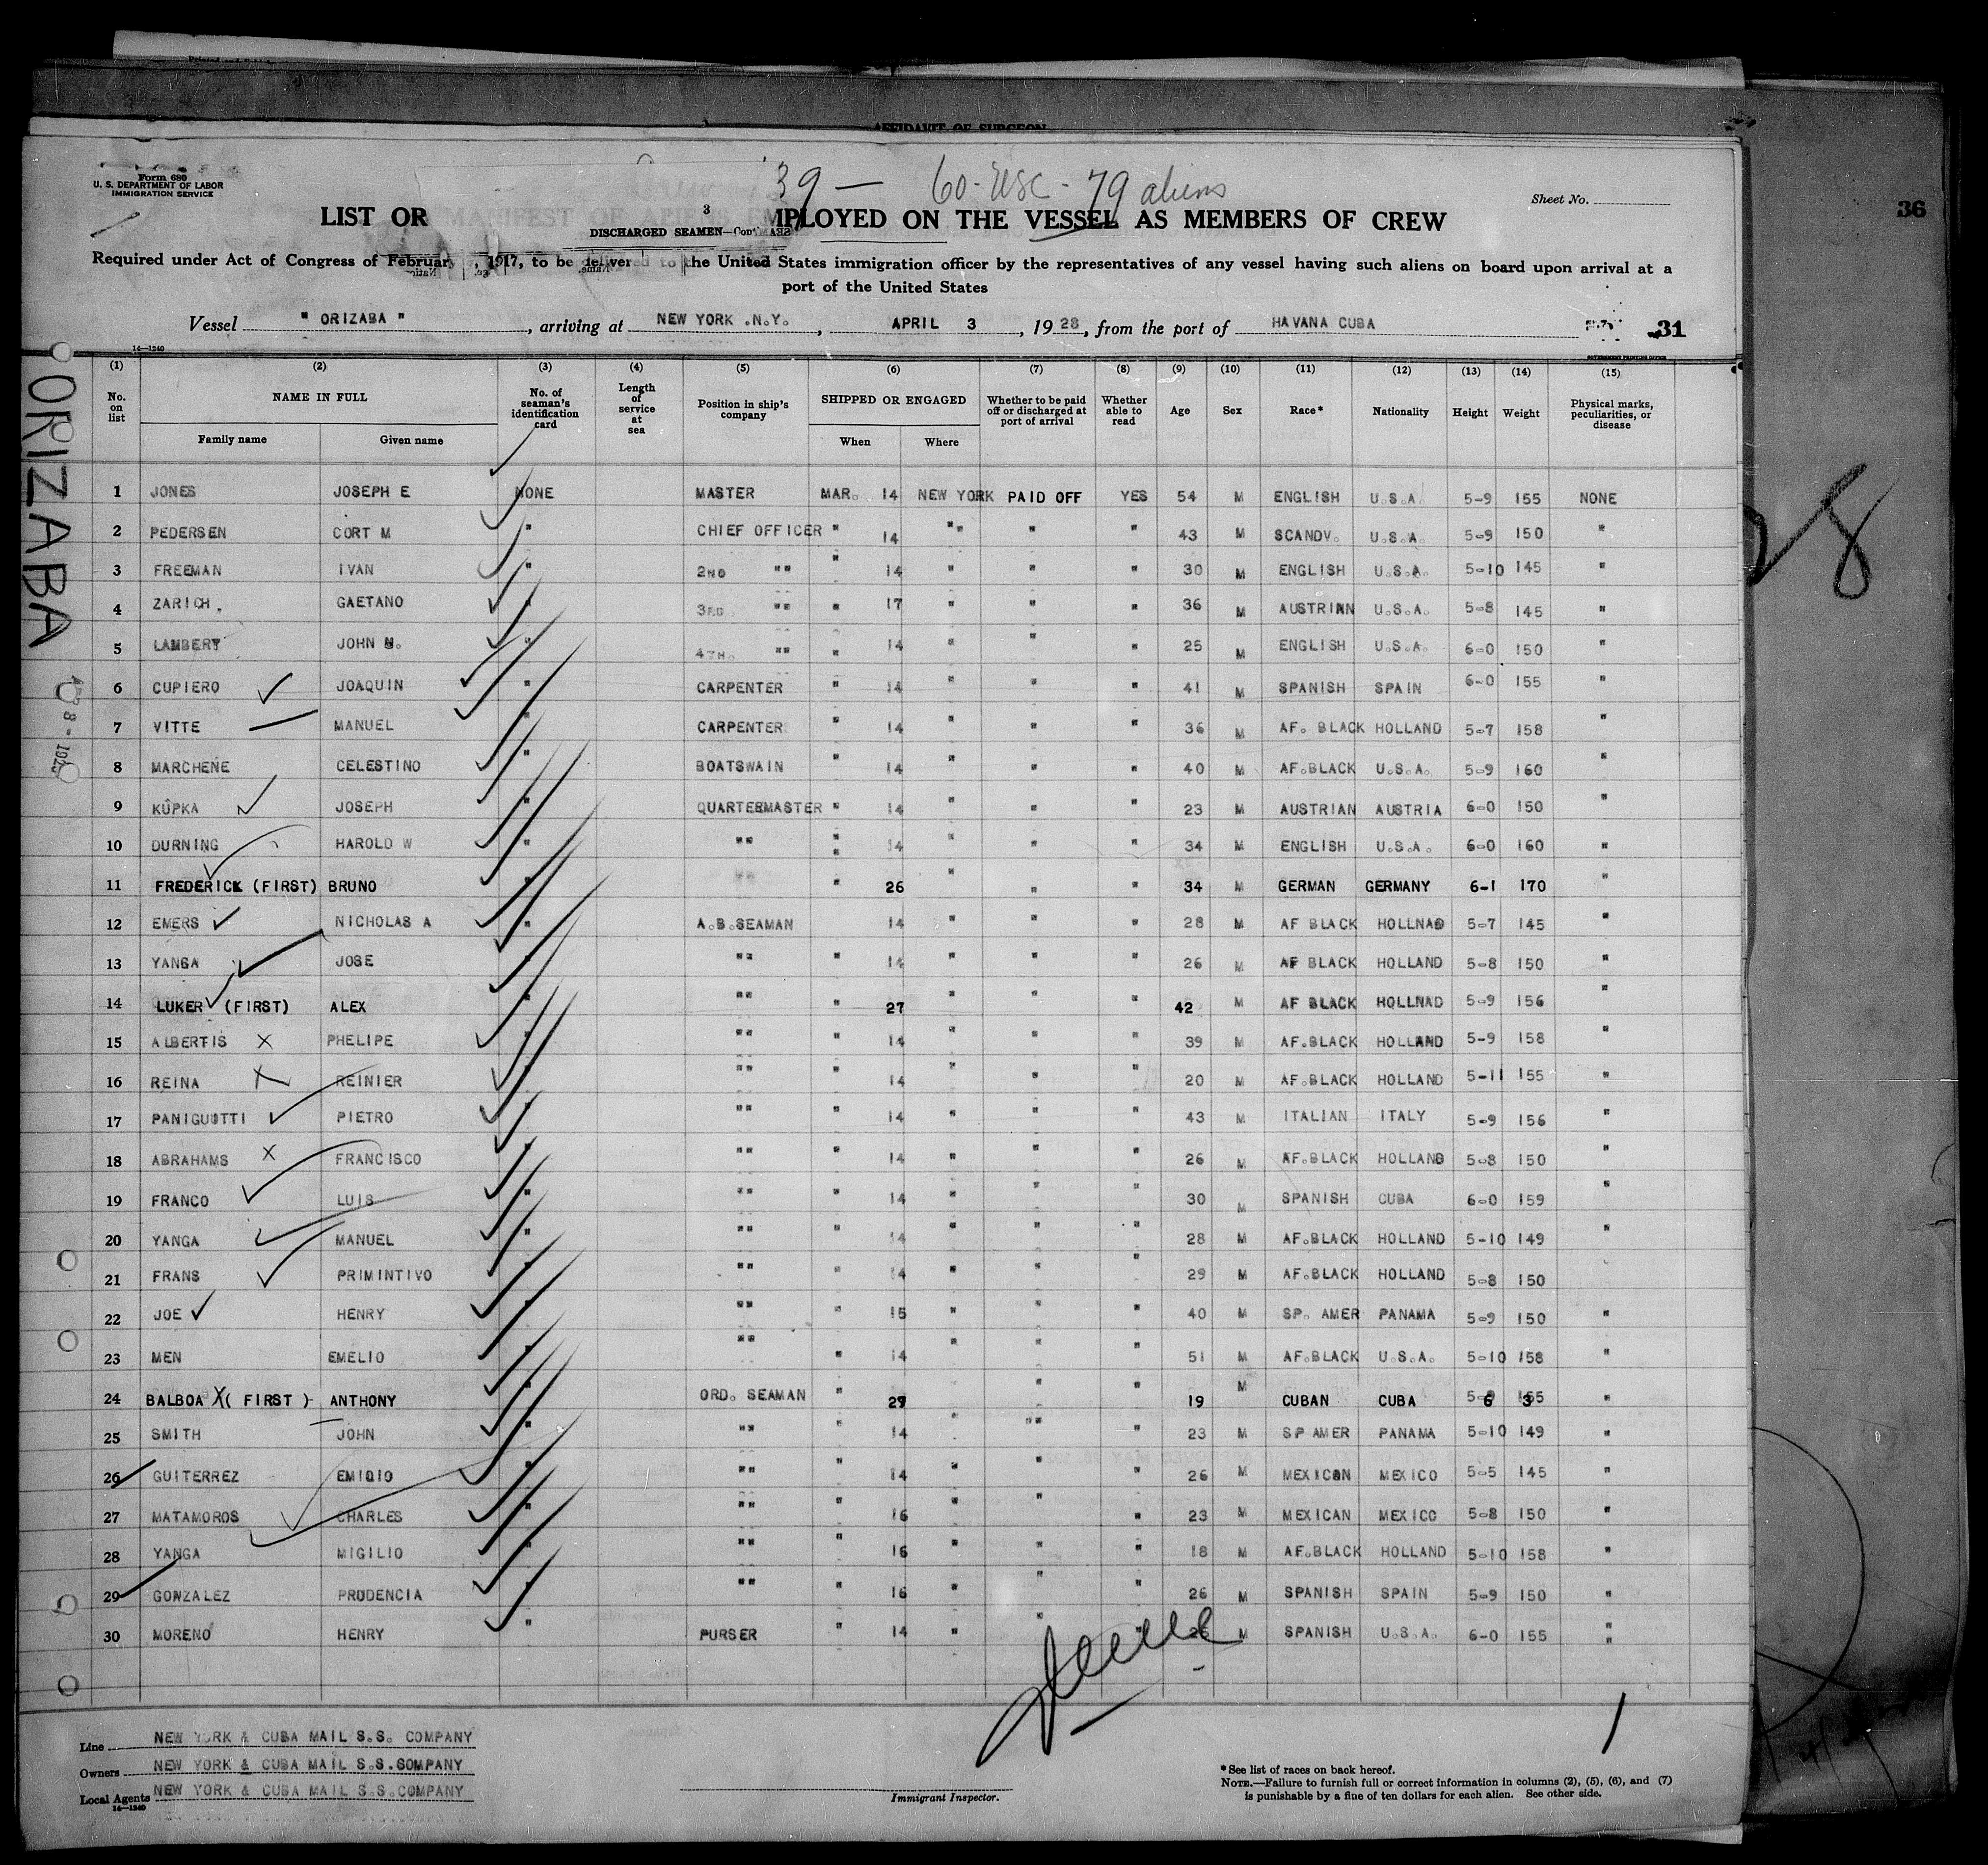 AFFIDAVIT OF SURGEON
Form 680
U. S. DEPARTMENT OF LABOR
IMMIGRATION SERVICE
39 — 60-USC - 79 aliens
Sheet No.
36
LIST OR MANIFEST OF ALIENS EMPLOYED ON THE VESSEL AS MEMBERS OF CREW
3
DISCHARGED SEAMEN—Con
Required under Act of Congress of February , 1917, to be delivered to the United States immigration officer by the representatives of any vessel having such aliens on board upon arrival at a
port of the United States
Vessel " ORIZABA " , arriving at NEW YORK .N.Y. , APRIL 3 , 19 28 , from the port of HAVANA CUBA 31
14—1240
GOVERNMENT PRINTING OFFICE
ORIZABA
28
(1) (2) (3) (4) (5) (6) (7) (8) (9) (10) (11) (12) (13) (14) (15)
No. on list NAME IN FULL Family name Given name No. of seaman's identification card Length of service at sea Position in ship's company SHIPPED OR ENGAGED When Where Whether to be paid off or discharged at port of arrival Whether able to read Age Sex Race* Nationality Height Weight Physical marks, peculiarities, or disease
1 JONES JOSEPH E NONE MASTER MAR. 14 NEW YORK PAID OFF YES 54 M ENGLISH U.S.A. 5-9 155 NONE
2 PEDERSEN CORT M " CHIEF OFFICER " 14 "" " " 43 M SCANDV. U.S.A. 5-9 150 "
3 FREEMAN IVAN " 2ND "" " 14 " " " 30 M ENGLISH U.S.A. 5-10 145 "
4 ZARICH. GAETANO " 3RD "" " 17 " " " 36 M AUSTRIAN U.S.A. 5-8 145 "
5 LAMBERT JOHN N. " 4TH. "" " 14 " " " 25 M ENGLISH U.S.A. 6-0 150 "
6 CUPIERO JOAQUIN " CARPENTER " 14 " " " 41 M SPANISH SPAIN 6-0 155 "
7 VITTE MANUEL " CARPENTER " 14 " " " 36 M AF. BLACK HOLLAND 5-7 158 "
8 MARCHENE CELESTINO " BOATSWAIN " 14 " " " 40 M AF.BLACK U.S.A. 5-9 160 "
9 KUPKA JOSEPH " QUARTERMASTER " 14 " " " 23 M AUSTRIAN AUSTRIA 6-0 150 "
10 DURNING HAROLD W " "" " 14 " " " 34 M ENGLISH U.S.A. 6-0 160 "
11 FREDERICK (FIRST) BRUNO "" " 26 " " " 34 M GERMAN GERMANY 6-1 170 "
12 EMERS NICHOLAS A " A.B.SEAMAN 14 " " " 28 M AF BLACK HOLLNAD 5-7 145 "
13 YANGA JOSE "" " 14 " " " 26 M AF BLACK HOLLAND 5-8 150 "
14 LUKER (FIRST) ALEX " "" " 27 " " " 42 M AF BLACK HOLLNAD 5-9 156 "
15 ALBERTIS PHELIPE " "" " 14 " " " 39 M AF.BLACK HOLLAND 5-9 158 "
16 REINA REINIER " "" " 14 " " " 20 M AF.BLACK HOLLAND 5-11 155 "
17 PANIGUOTTI PIETRO " "" " 14 " " " 43 M ITALIAN ITALY 5-9 156 "
18 ABRAHAMS FRANCISCO " "" " 14 " " " 26 M AF.BLACK HOLLAND 5-8 150 "
19 FRANCO LUIS " "" " 14 " " " 30 M SPANISH CUBA 6-0 159 "
20 YANGA MANUEL " "" " 14 " " " 28 M AF.BLACK HOLLAND 5-10 149 "
21 FRANS PRIMINTIVO " "" " 14 " " " 29 M AF.BLACK HOLLAND 5-8 150
22 JOE HENRY " "" " 15 " " " 40 M SP. AMER PANAMA 5-9 150 "
23 MEN EMELIO " "" " 14 " " " 51 M AF.BLACK U.S.A. 5-10 158 "
24 BALBOA X ( FIRST )- ANTHONY " ORD. SEAMAN " 27 " " 19 M CUBAN CUBA "
25 SMITH JOHN " "" " 14 " "" " 23 M SP AMER PANAMA 5-10 149 "
26 GUITERREZ EMIDIO " "" " 14 " " " 26 M MEXICAN MEXICO 5-5 145 "
27 MATAMOROS CHARLES " "" " 16 " " " 23 M MEXICAN MEXICO 5-8 150 "
28 YANGA MIGILIO " "" " 16 " " " 18 M AF.BLACK HOLLAND 5-10 158 "
29 GONZALEZ PRUDENCIA " "" " 16 " " " 26 M SPANISH SPAIN 5-9 150 "
30 MORENO HENRY " PURSER " 14 " " " M SPANISH U.S.A. 6-0 155 "
Line NEW YORK & CUBA MAIL S.S. COMPANY
Owners NEW YORK & CUBA MAIL S.S.SOMPANY
Local Agents NEW YORK & CUBA MAIL S.S.COMPANY
14—1240
Immigrant Inspector.
*See list of races on back hereof.
NOTE.—Failure to furnish full or correct information in columns (2), (5), (6), and (7)
is punishable by a fine of ten dollars for each alien. See other side.